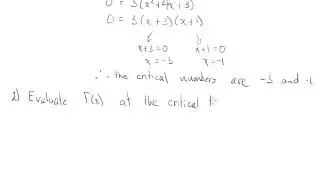 0 = 3(x²+4x+3)
0 = 3(x+3)(x+1)
x+3=0 x+1=0
x=-3 x=-1
∴ the critical numbers are -3 and -1
2) Evaluate f(x) at the critical